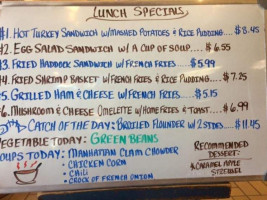 LUNCH SPECIALS
#1. HOT TURKEY SANDWICH W/MASHED POTATOES & RICE PUDDING.... $8.45
#2. EGG SALAD SANDWICH W/ A CUP OF SOUP..... $6.55
#3. FRIED HADDOCK SANDWICH W/FRENCH FRIES..... $5.99
#4. FRIED SHRIMP BASKET W/FRENCH FRIES & RICE PUDDING.... $7.25
#5. GRILLED HAM & CHEESE W/FRENCH FRIES..... $5.15
#6. MUSHROOM & CHEESE OMELETTE W/HOME FRIES & TOAST.... $6.99
CATCH OF THE DAY: BROILED FLOUNDER W/ 2 SIDES... $11.45
VEGETABLE TODAY: GREEN BEANS
SOUPS TODAY: MANHATTAN CLAM CHOWDER
- CHICKEN CORN
- CHILI
- CROCK OF FRENCH ONION
RECOMMENDED
DESSERT:
CARAMEL APPLE
STREUSEL